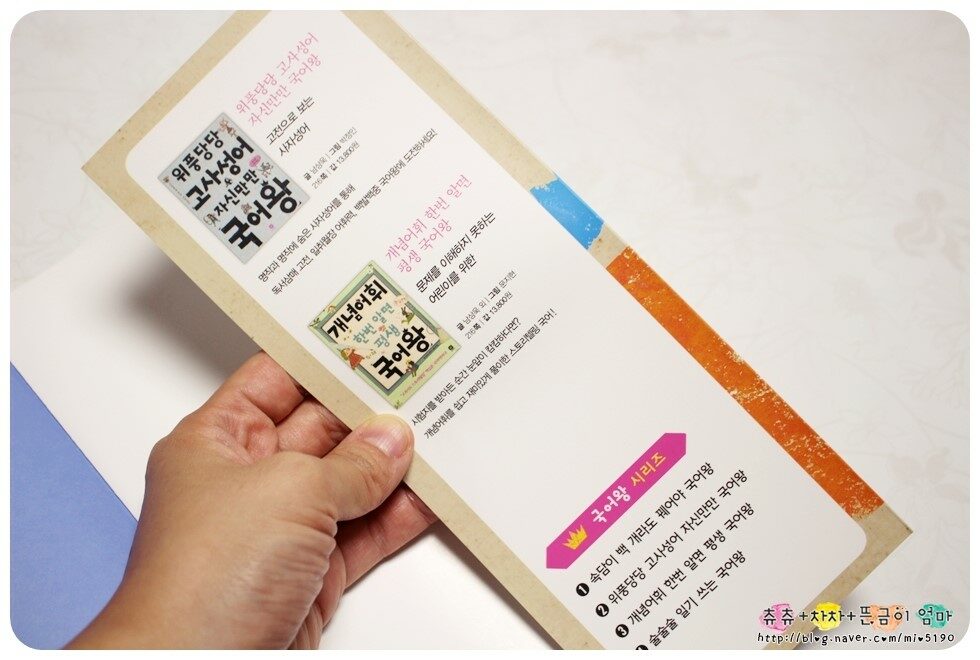 위풍당당 고사성어
자신만만 국어왕
고전으로 보는
사자성어
글 남상욱 | 그림 박정인
216쪽 | 값 13,800원
위풍당당
고사성어
자신만만
국어왕
명작과 명작에 숨은 사자성어를 통해
독서삼매 고전, 일취월장 어휘력, 백발백중 국어왕에 도전하세요!
개념어휘 한번 알면
평생 국어왕
문제를 이해하지 못하는
어린이를 위한
글 남상욱 외 | 그림 문지현
216쪽 | 값 13,800원
개념어휘
한번 알면
평생
국어왕
시험지를 받아든 순간 눈앞이 캄캄하다면?
개념어휘를 쉽고 재미있게 풀이한 스토리텔링 국어!
국어왕 시리즈
❶ 속담이 백 개라도 꿰어야 국어왕
❷ 위풍당당 고사성어 자신만만 국어왕
❸ 개념어휘 한번 알면 평생 국어왕
술술술 일기 쓰는 국어왕
츄츄+차차+뜬금이 엄마
http://blog.naver.com/mio5190